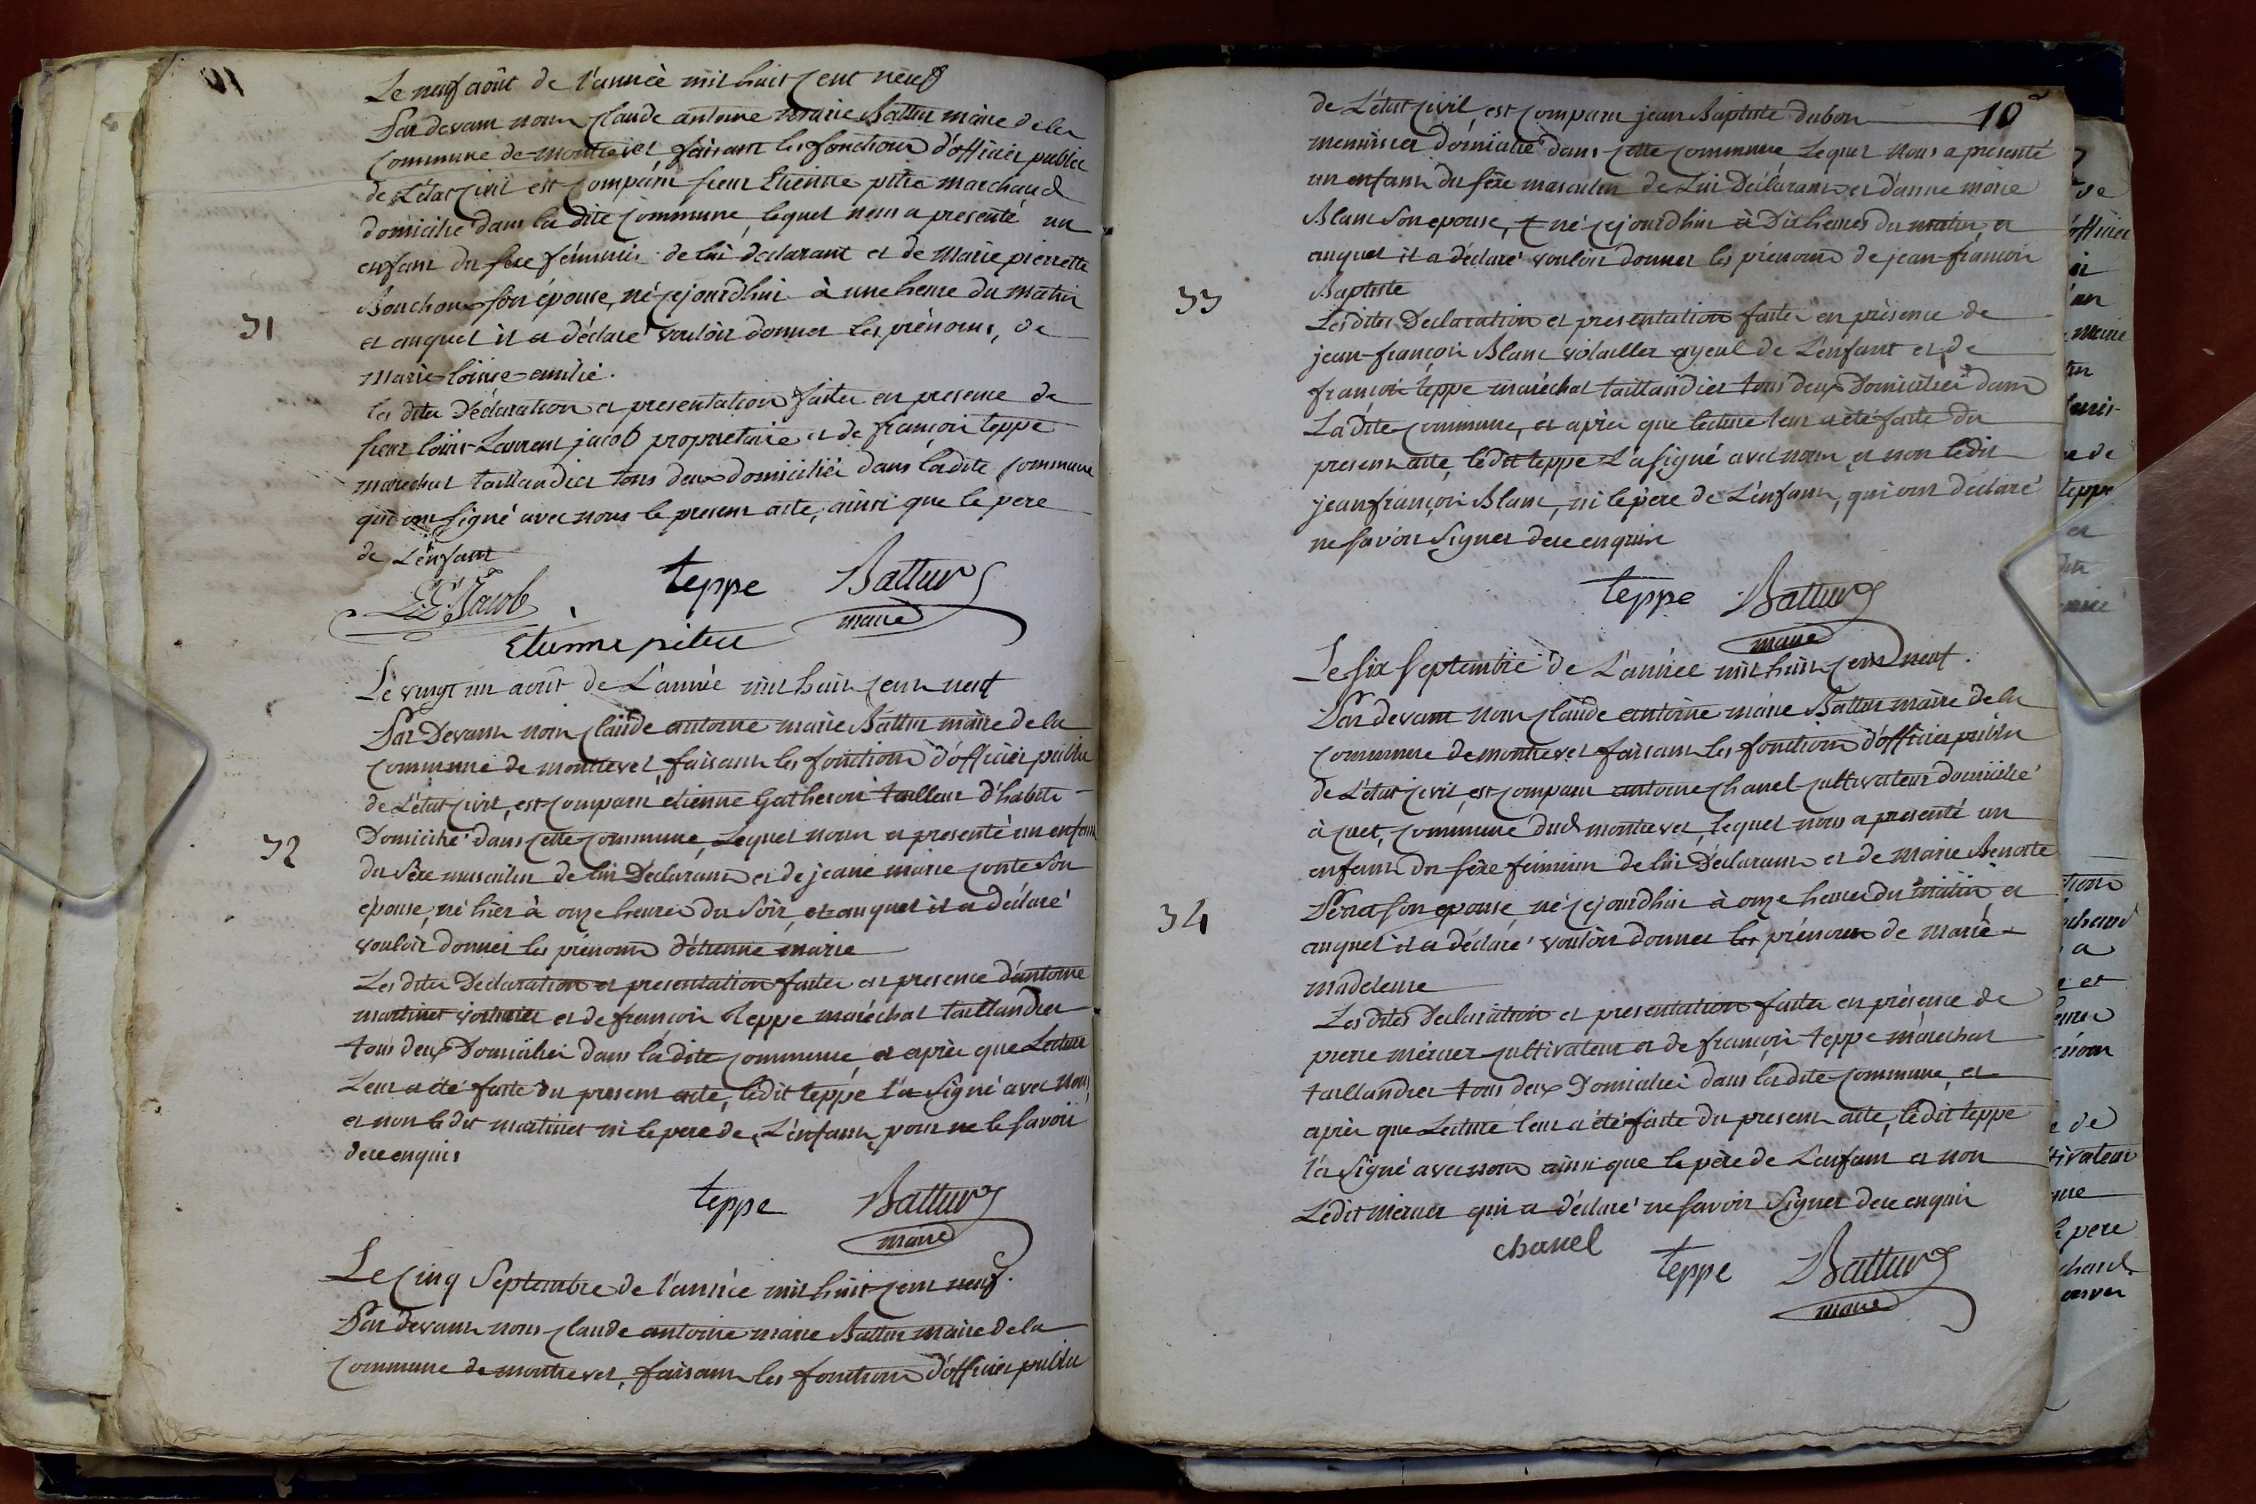 Le neuf août de l'année mil huit cent neuf
Par devant nous claude antoine marie Battur maire de la
commune de montrevel, faisant les fonctions d'officier public
de L'état civil est comparu sieur Etienne pitre marchand
domicilié dans la dite commune, lequel nous a presenté un
enfant du sexe féminin de lui declarant et de Marie pierrette
Bouchoux son épouse, né cejourdhui à une heure du matin
31
et auquel il a déclaré vouloir donner les prénoms, de
marie loüise emilie.
les dites Déclaration et presentation faites en presence de
sieur loüis Laurent jacob proprietaire et de françois teppe
marechal taillandier tous deux domiciliés dans ladite commune
qui ont signé avec nous le present acte, ainsi que le pere
de L'enfant
L L Jacob
teppe Battur
maire
Etienne pitre
Le vingt un août de L'année mil huit cent neuf
Par Devant nous claude antoine marie Battur maire de la
commune de montrevel, faisant les fonctions d'officier public
de L'état civil, est comparu etienne Gatheron tailleur d'habits
Domicilié dans cette commune, Lequel nous a presenté un enfant
32
du sexe masculin de lui Declarant et de jeane marie conte son
épouse, né hier à onze heures du soir, et auquel il a déclaré
vouloir donner les prénoms d'étienne marie
Les dites Declaration et presentation faites en presence d'antoine
martinet voiturier et de françois teppe maréchal taillandier
tous deux Domiciliés dans la dite commune, et après que Lecture
Leur a été faite du present acte, ledit teppe l'a signé avec nous,
et non le dit martinet ni le pere de L'enfant, pour ne le savoir
de ce enquis
teppe Battur
maire
Le cinq Septembre de l'année mil huit cent neuf.
Par devant nous claude antoine marie Battur maire de la
commune de montrevel, faisant les fonctions d'officier public
10
de L'état civil, est comparu jean Baptiste dubon
menuisier domicilié dans cette commune, Lequel nous a presenté
un enfant du sexe masculin de Lui Déclarant et d'anne marie
Blanc son epouse, né cejourdhui à Dix heures du matin, et
auquel il a déclaré vouloir donner les prénoms de jean françois
Baptiste
33
Les dites Declaration et presentation faites en présence de
jean françois Blanc volailler ayeul de L'enfant et de
françois teppe maréchal taillandier tous deux Domiciliés dans
La dite commune, et après que lecture leur a été faite du
present acte, ledit teppe L'a signé avec nous, et non ledit
jean françois Blanc, ni le père de L'enfant, qui ont déclaré
ne savoir signer de ce enquis
teppe Battur
maire
Le six septembre de L'année mil huit cent neuf.
Par devant nous claude antoine marie Battur maire de la
commune de montrevel faisant les fonctions d'officier public
de L'état civil, est comparu antoine chanel cultivateur domicilié
à cuet, commune dud. montrevel, lequel nous a presenté un
enfant du sexe féminin de lui Déclarant et de marie Benoite
Perra son epouse, né cejourdhui à onze heures du matin, et
34
auquel il a déclaré vouloir donner les prénoms de marie
madeleine
Les dites declaration et presentation faites en présence de
pierre mercier cultivateur et de françois teppe maréchal
taillandier tous deux Domiciliés dans la dite commune, et
après que Lecture leur a été faite du present acte, ledit teppe
l'a signé avec nous ainsi que le père de L'enfant et non
Ledit mercier qui a déclaré ne savoir signer de ce enquis
chanel
teppe Battur
maire